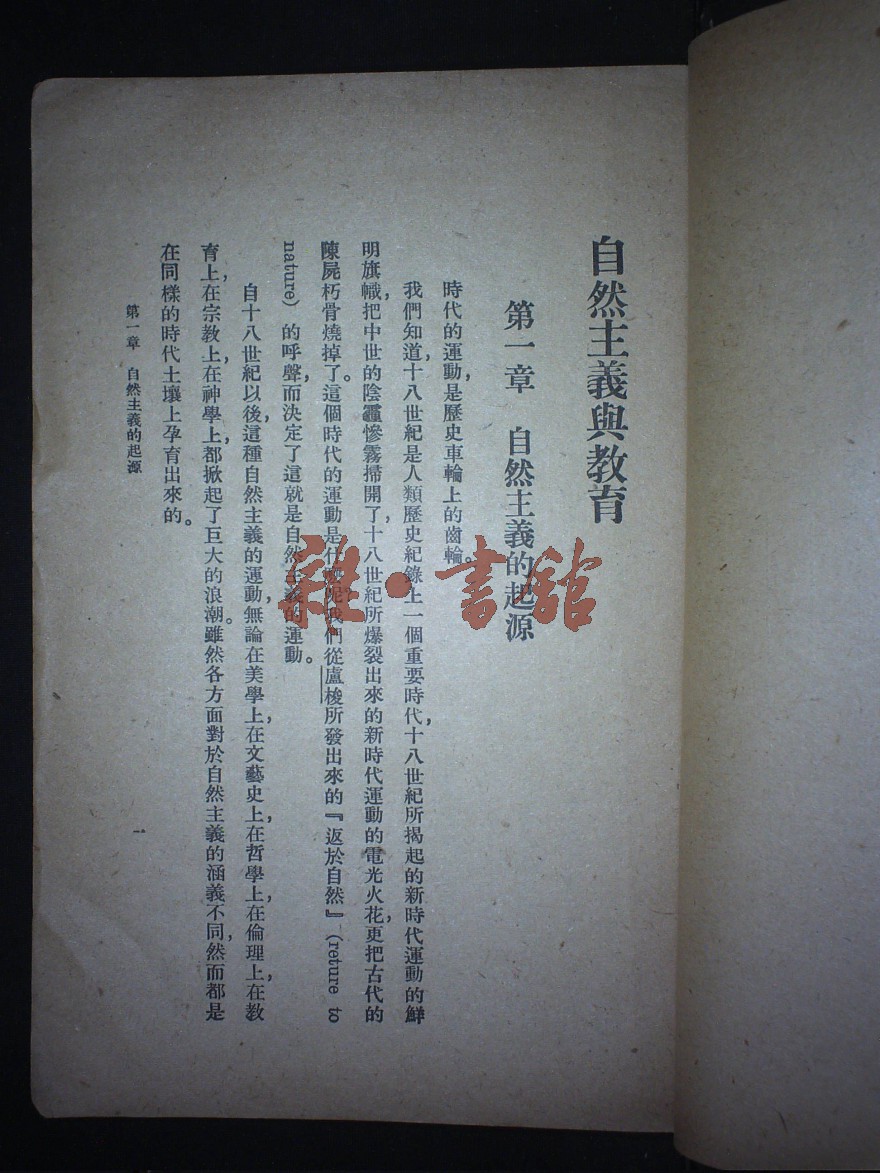 自然主義與教育
第一章 自然主義的起源
時代的運動，是歷史車輪上的齒輪。
我們知道，十八世紀是人類歷史紀錄上一個重要時代，十八世紀所揭起的新時代運動的鮮
明旗幟，把中世的陰霾慘霧掃開了，十八世紀所爆裂出來的新時代運動的電光火花，更把古代的
陳屍朽骨燒掉了。這個時代的運動是什麼呢？我們從盧梭所發出來的『返於自然』(reture to
nature) 的呼聲，而決定了這就是自然主義的運動。
自十八世紀以後，這種自然主義的運動，無論在美學上，在文藝史上，在哲學上，在倫理上，在教
育上，在宗教上，在神學上，都掀起了巨大的浪潮。雖然各方面對於自然主義的涵義不同，然而都是
在同樣的時代土壤上孕育出來的。
第一章 自然主義的起源
一
雜·書館